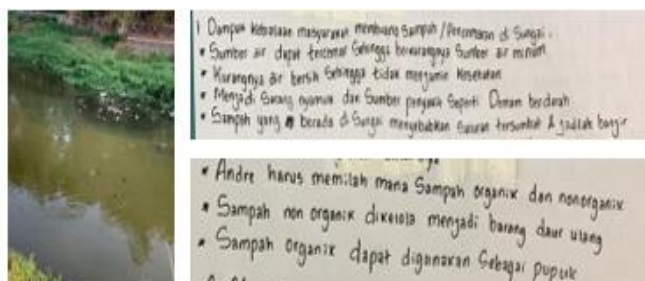 1 Dampak kebiasaan masyarakat membuang sampah / Pencemaran di Sungai.
• Sumber air dapat tercemar Sehingga berkurangnya Sumber air minum
• Kurangnya air bersih Sehingga tidak menjamin kesehatan
• Menjadi Sarang nyamuk dan Sumber penyakit Seperti Demam berdarah
• Sampah yang berada di Sungai menyebabkan Saluran tersumbat & jadilah banjir
• Andre harus memilah mana Sampah organik dan nonorganik
• Sampah non organik dikelola menjadi barang daur ulang
• Sampah organik dapat digunakan Sebagai pupuk